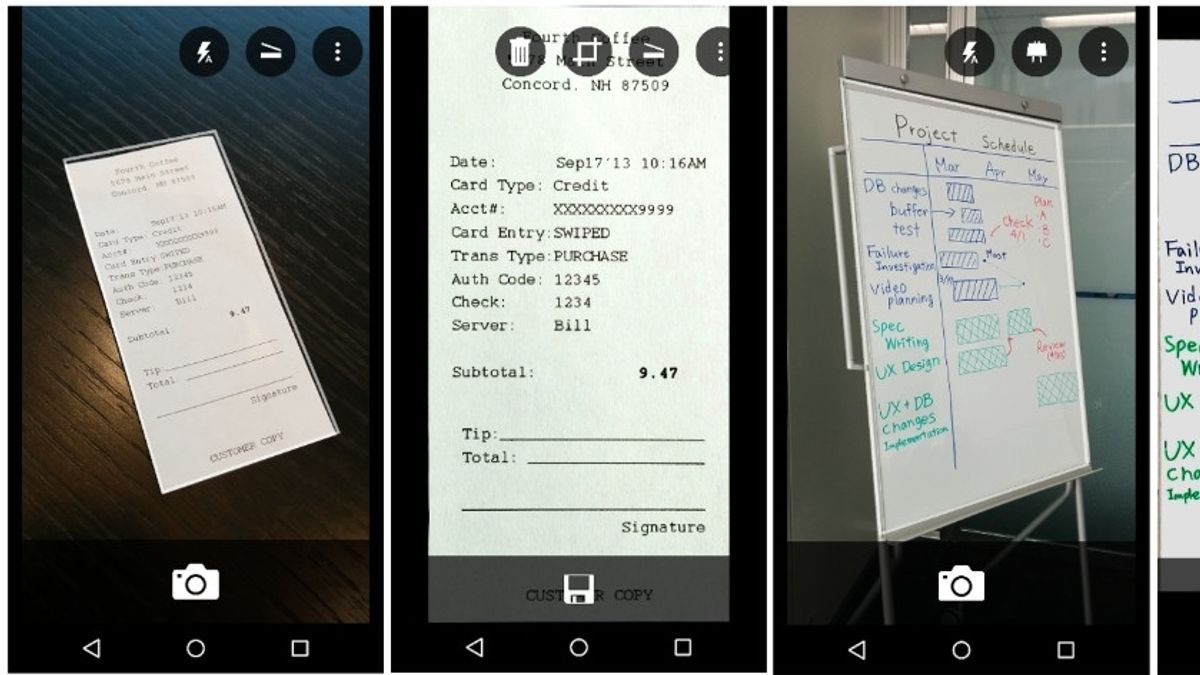 Fourth Coffee
5678 Main Street
Concord, NH 87509
Date: Sep17'13 10:16AM
Card Type: Credit
Acct#: XXXXXXXXX9999
Card Entry: SWIPED
Trans Type: PURCHASE
Auth Code: 12345
Check: 1234
Server: Bill
Subtotal: 9.47
Tip:
Total:
Signature
CUSTOMER COPY
Fourth Coffee
Main Street
Concord, NH 87509
Date: Sep17'13 10:16AM
Card Type: Credit
Acct#: XXXXXXXXX9999
Card Entry:SWIPED
Trans Type:PURCHASE
Auth Code: 12345
Check: 1234
Server: Bill
Subtotal: 9.47
Tip:
Total:
Signature
COPY
Project Schedule
Mar Apr May
DB changes
buffer
test
Plan
·A
·B
·C
Check
4/1
Failure
Investigation
Most
Video
planning
Spec
Writing
UX Design
Review
UX + DB
Changes
Implementation
DB
Fail
Inv
Vid
P
Spe
W
UX
UX
Cha
Imple